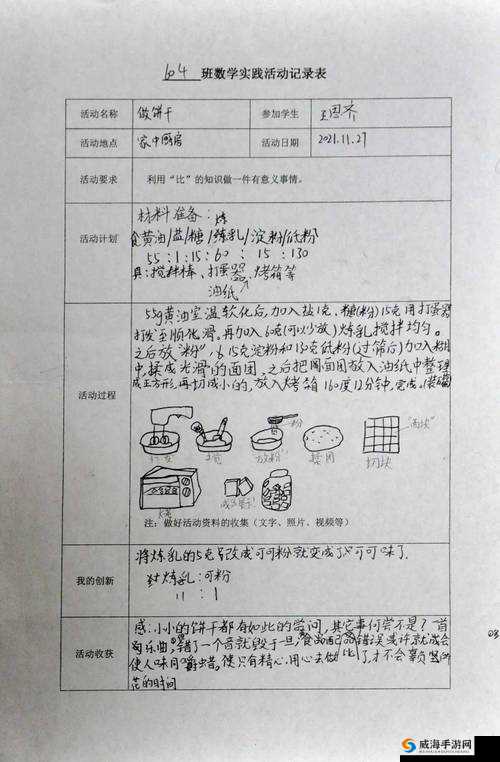 604 班数学实践活动记录表
活动名称 做饼干 参加学生 王思齐
活动地点 家中厨房 活动日期 2021.11.27
活动要求 利用“比”的知识做一件有意义事情。
活动计划
材料准备:
黄油/盐/糖/炼乳/淀粉/低粉
55:1:15:60:15:130
具:搅拌棒、打蛋器、烤箱等
油纸
活动过程
55g黄油室温软化后,加入盐1克、糖(粉)15克用打蛋器
打发至顺化滑。再加入60克(可以少放)炼乳搅拌均匀。
之后放“粉”,15克淀粉和130克低粉(过筛后)加入
中,揉成光滑的面团,之后把面团放入油纸中整理
成正方形,再切成小的,放入烤箱160度12分钟,完成。
粉
放粉
切块
烤
注:做好活动资料的收集(文字、照片、视频等)
我的创新
将炼乳的5克导改成可可粉就变成了可可味了。
炼乳:可粉
11:1
活动收获
感:小小的饼干都有如此的学问,其它事何尝不是?一首
乐曲,错了一个音就毁于一旦,
使人味同嚼蜡。只有精心、用心去做了,才不会辜负
花的时间
威海手游网